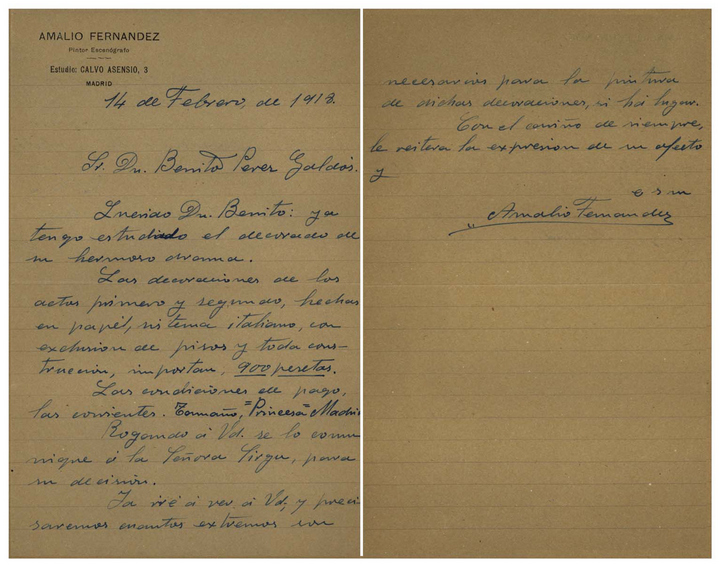 AMALIO FERNANDEZ
Pintor Escenógrafo
Estudio: CALVO ASENSIO, 3
MADRID
14 de Febrero, de 1918.
Sr. Dn. Benito Perez Galdós.
Querido Dn. Benito: ya
tengo estudiado el decorado de
su hermoso drama.
Las decoraciones de los
actos primero y segundo, hechas
en papél, sistema italiano, con
exclusion de pisos y toda cons-
trucción, importan, 900 pesetas.
Las condiciones de pago,
las corrientes. Tamaño, "Princesa" Madrid
Rogando á Vd. se lo comu
nique á la Señora Xirgu, para
su decisión.
Ya iré á ver á Vd, y preci
saremos cuantos extremos son
necesarios para la pintura
de dichas decoraciones, si há lugar.
Con el cariño de siempre,
le reitera la expresion de su afecto
y
Amalio Fernandez